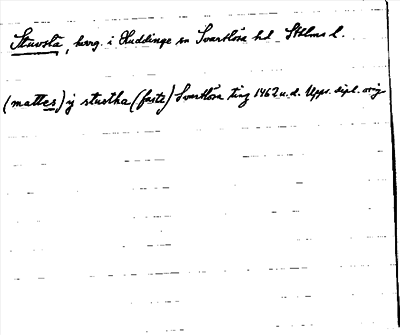 Stuvsta, herrg. i Huddinge sn Svartlösa hd Sthlms l.
(mattes) ij stustha (faste) Svartlösa ting 1462 u.d. Upps. dipl. orig